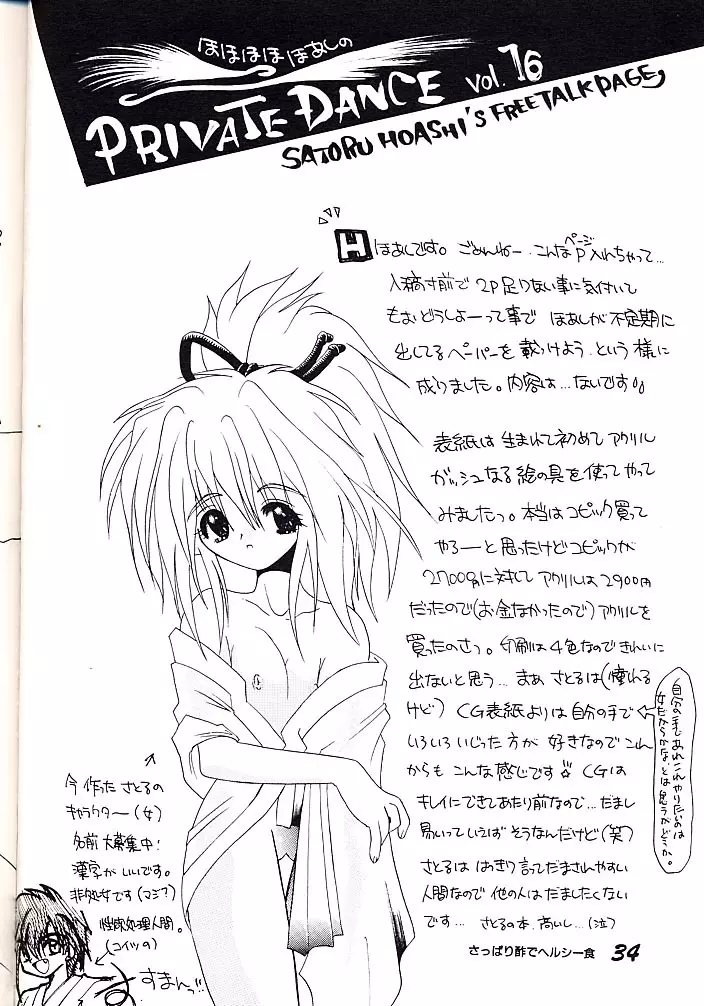 ほほほほほあしの
PRIVATE DANCE vol.16
SATORU HOASHI'S FREE TALK PAGE
ほあしです。ごめんねー.こんなP入れちゃって…
ページ
入稿寸前で2P足りない事に気付いて
もぉどうしよーって事で ほあしが不定期に
出してるペーパーを載っけよう.という様に
成りました。内容は…ないです
表紙は生まれて初めてアクリル
ガッシュなる絵の具を使ってやって
みましたっ。本当はコピック買って
やろーと思ったけどコピックが
2700円に対して アクリルは2900円
だったので(お金なかったので)アクリルを
買ったのさっ。印刷は4色なのできれいに
出ないと思う… まぁ さとるは(憧れる
けど) CG表紙よりは自分の手で
いろいろいじった方が 好きなのでこれ
からも こんな感じです CGは
キレイにできてあたり前なので…だまし
易いっていえばそうなんだけど(笑)
さとるは はっきり言ってだまされやすい
人間なので 他の人はだましたくない
です… さとるの本.高いし…(泣)
自分の手であれこれやりたいのは
女だからかな.とは思うがどうか。
さっぱり酢でヘルシー食 34